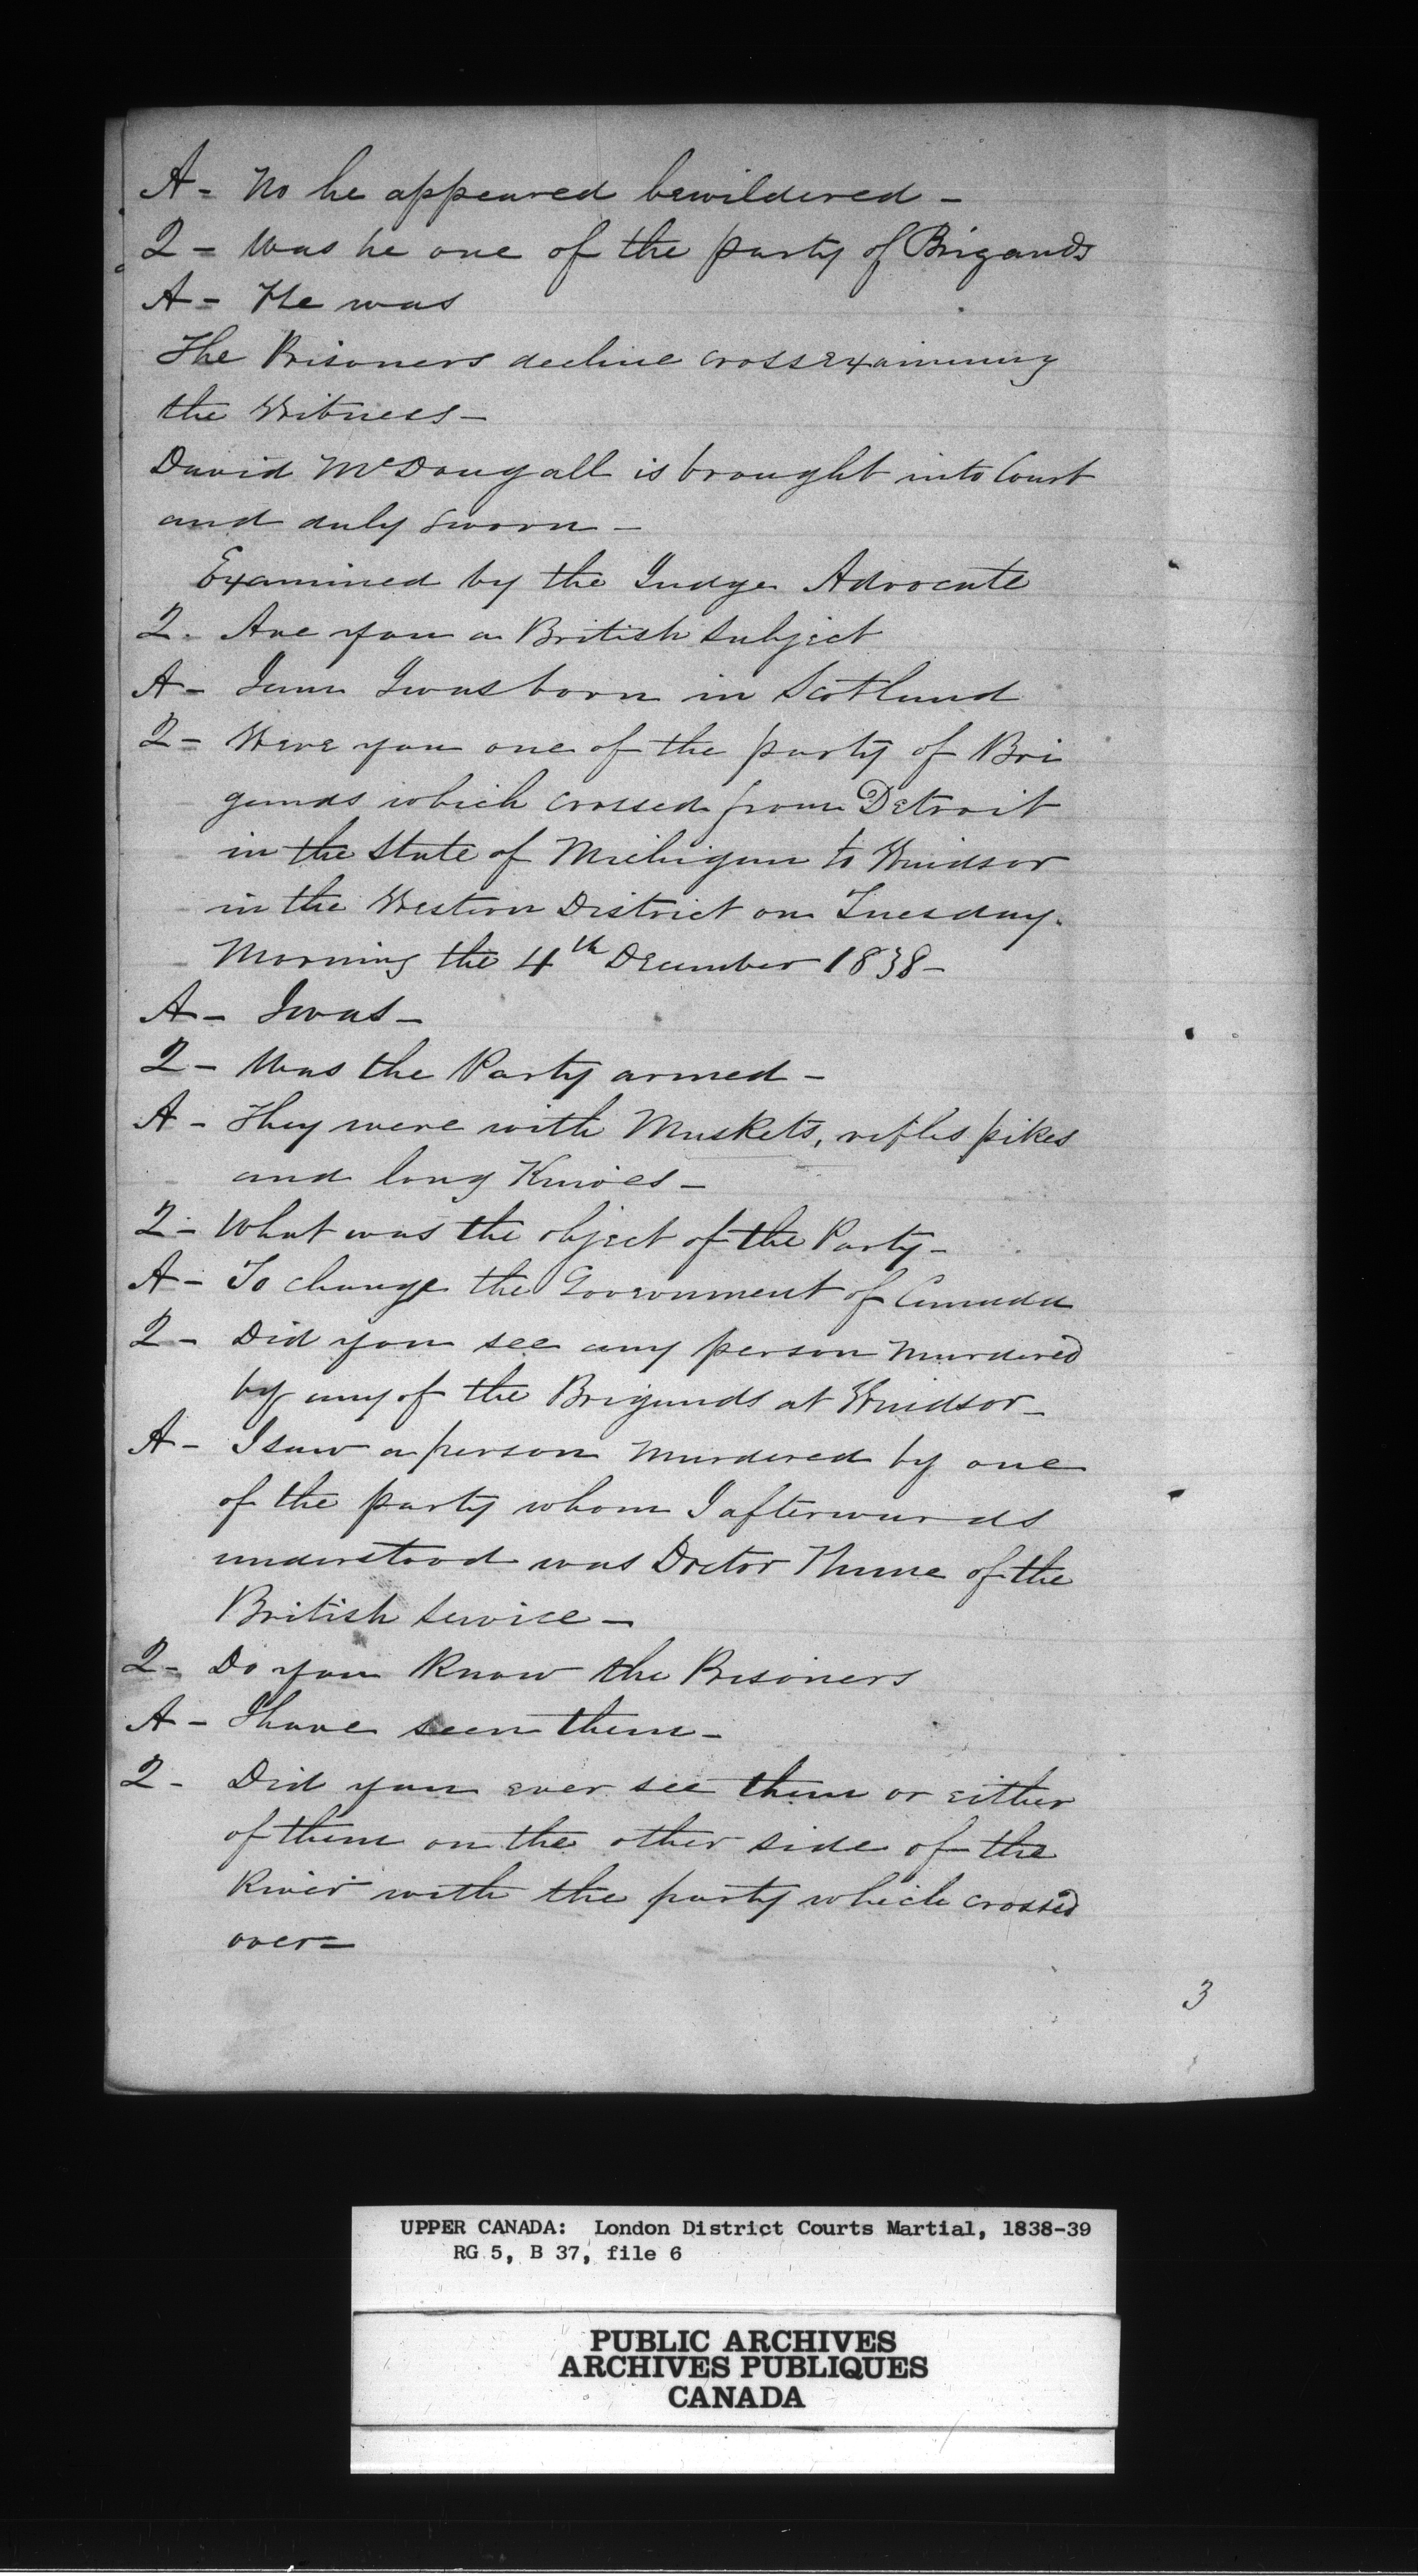 A - No he appeared bewildered -
Q - Was he one of the party of Brigands
A - He was
The Prisoners decline crossexamining
the Witness -
David McDougall is brought into Court
and duly sworn -
Examined by the Judge Advocate
Q. Are you a British Subject
A - I am I was born in Scotland
Q - Were you one of the party of Bri
gands which crossed from Detroit
in the State of Michigan to Windsor
in the Western District on Tuesday
Morning the 4th December 1838 -
A - I was -
Q - Was the Party armed -
A - They were with Muskets, rifles pikes
and long Knives -
Q - What was the object of the Party -
A - To change the Government of Canada
Q - Did you see any person murdered
by any of the Brigands at Windsor -
A - I saw a person murdered by one
of the party whom I afterwards
understood was Doctor Hume of the
British Service -
Q - Do you Know the Prisoners
A - I have seen them -
Q - Did you ever see them or either
of them on the other side of the
River with the party which crossed
over -
3
UPPER CANADA: London District Courts Martial, 1838-39
RG 5, B 37, file 6
PUBLIC ARCHIVES
ARCHIVES PUBLIQUES
CANADA